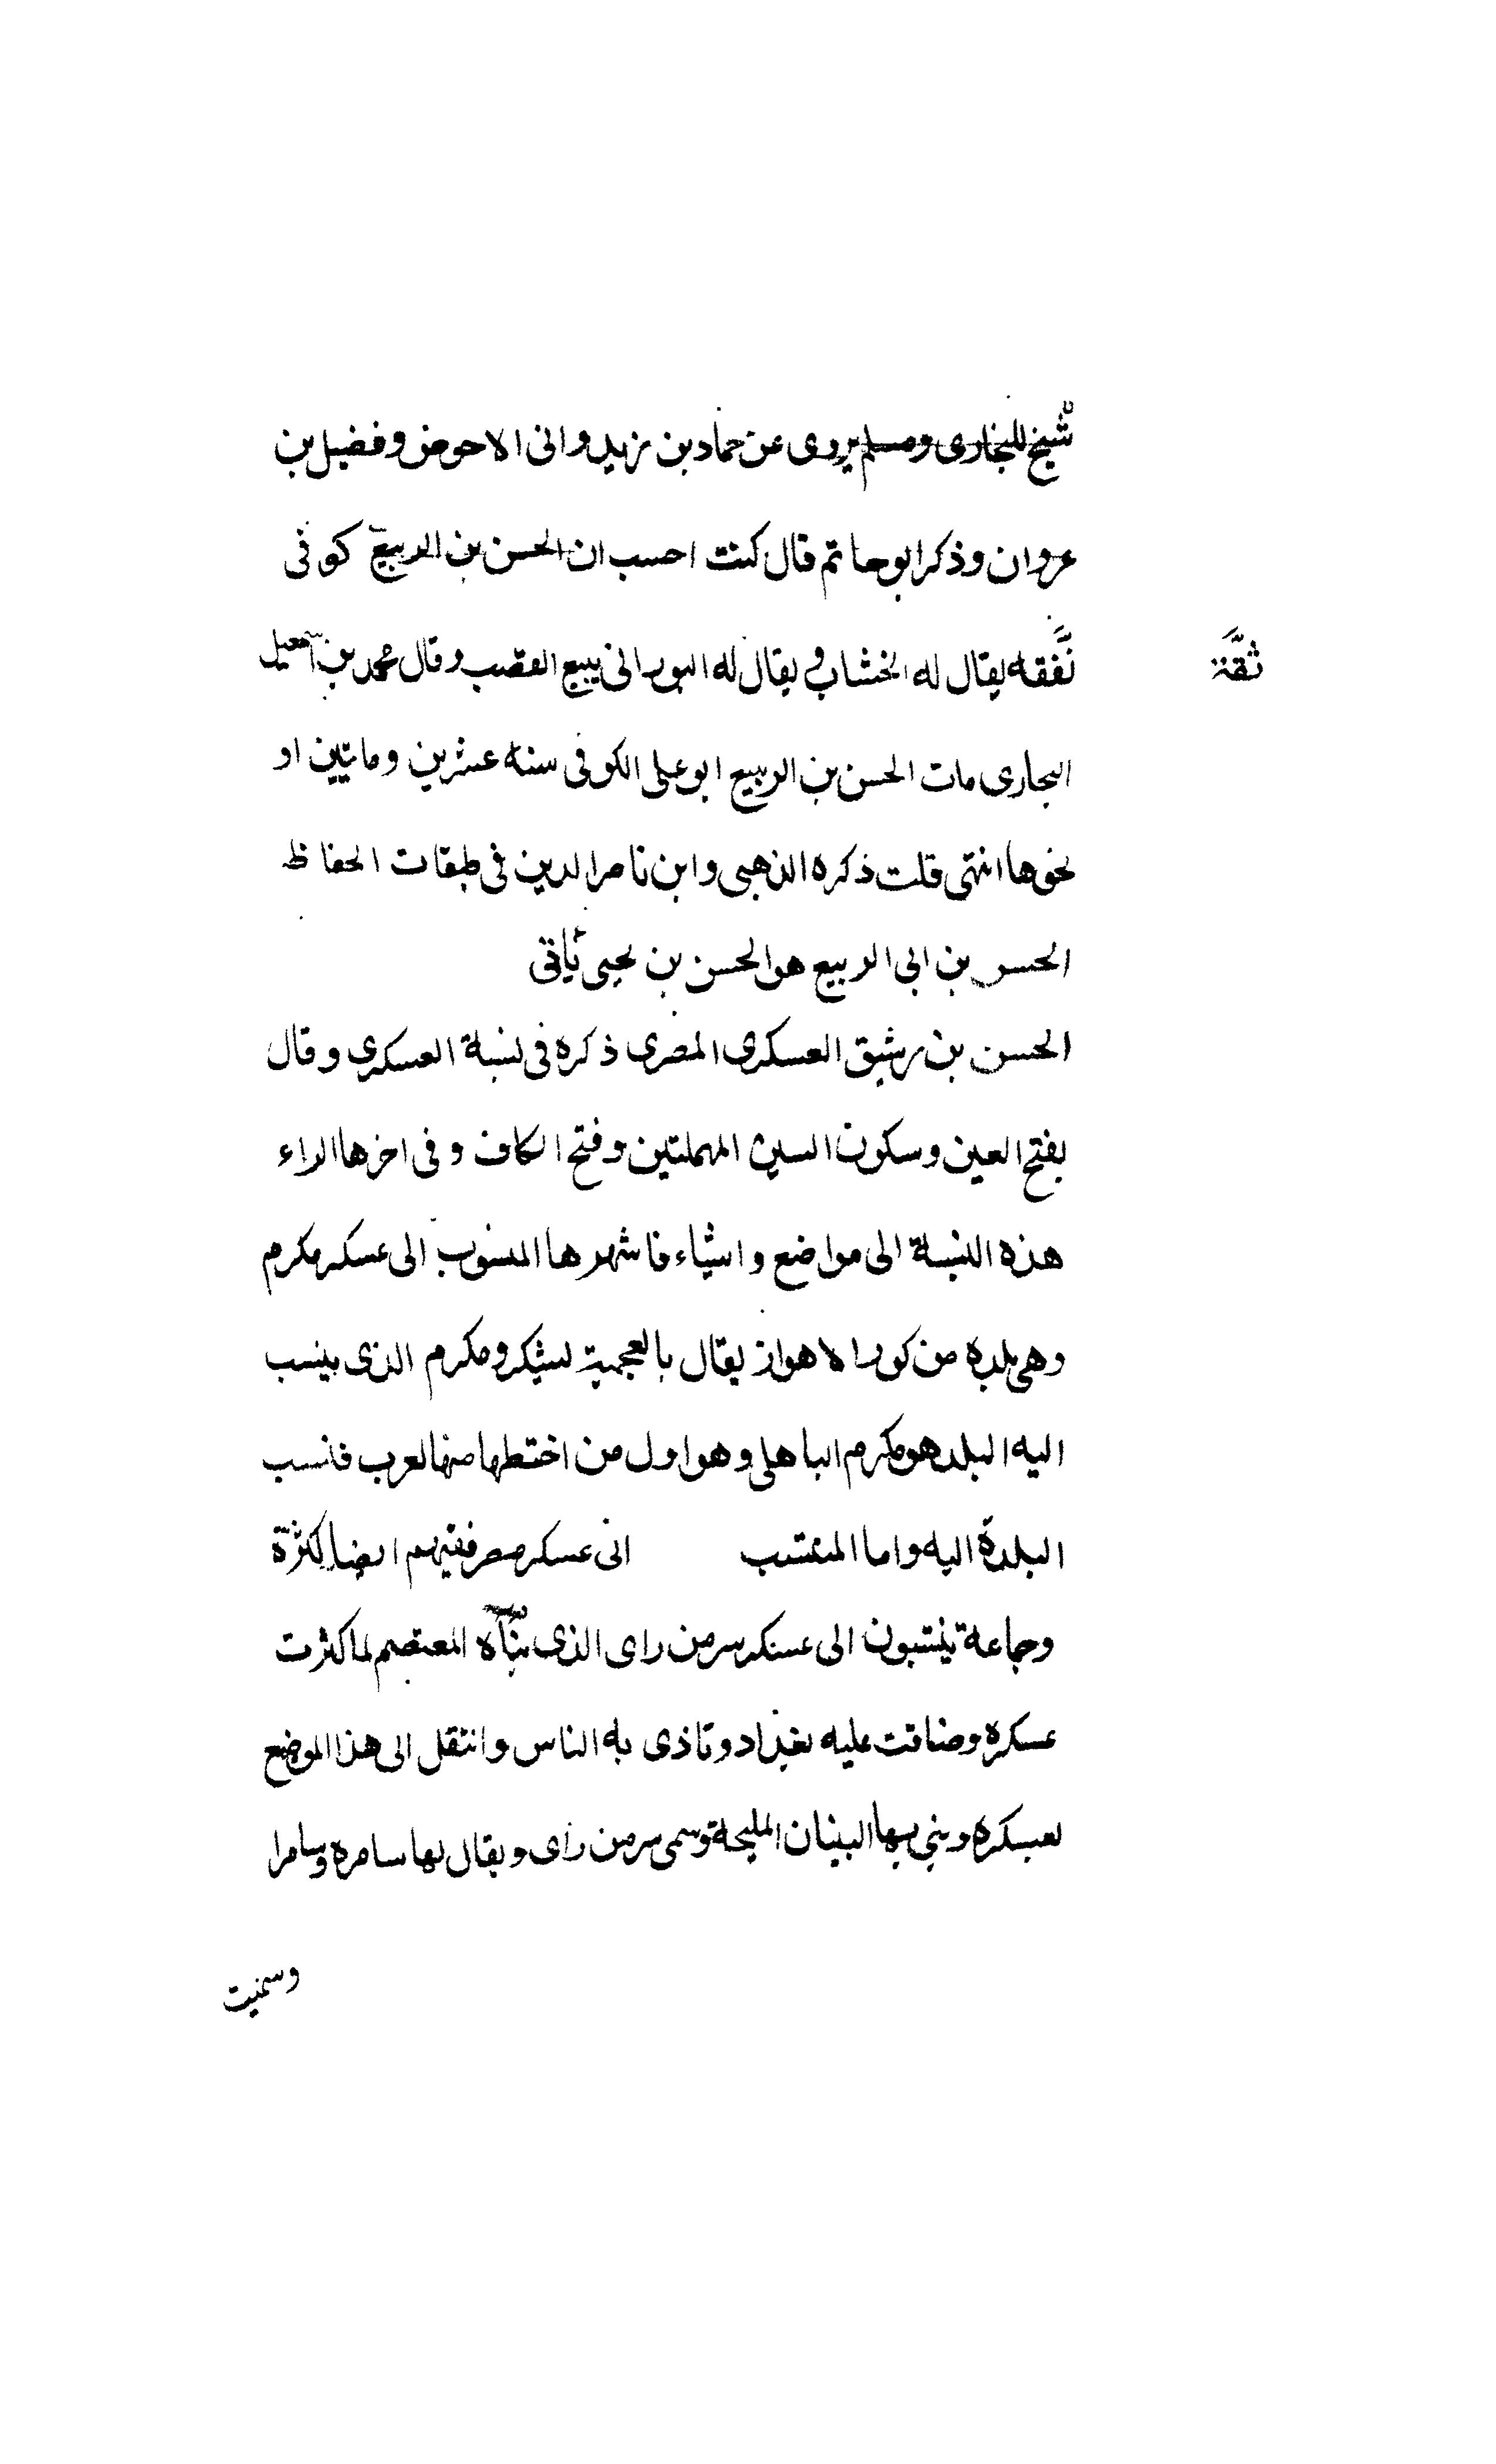 شيخ للبخارى ومسلم يروى عن حماد بن زيد وانى الاحوض وفضيل بن
عروان وذكر ابو حاتم قال كنت احسب ان الحسن بن الربيع كوفى
ثقة
نفقه يقال له الخشاب فى يقال له البورانى يبيع القصب وقال محمد بن اسمعيل
البخارى مات الحسن بن الربيع ابو على الكوفى سنه عشرين ومايتين او
نحوها انتهى قلت ذكره الذهبى وابن ناصر الدين فى طبقات الحفاظ
الحسن بن ابى الربيع هو الحسن بن يحيى ياتى
الحسن بن رشيق العسكرى المصرى ذكره فى نسبة العسكرى وقال
بفتح العين وسكون السين المهملتين وفتح الكاف وفى اخرها الراء
هذه النسبة الى مواضع واشياء فاشهرها المنسوب الى عسكر مكرم
وهى بلدة من كور الاهواز يقال بالعجمية لشكر ومكرم الذى ينسب
اليه البلد هو مكرم الباهلى وهو اول من اختطها من العرب فانسب
البلدة اليه واما المنتسب الى عسكر مصر ففيهم ايضا كثرة
وجماعة ينتسبون الى عسكر سر من راى الذى بناه المعتصم لما كثرت
عسكره وضاقت عليه بغداد وتاذى به الناس وانتقل الى هذا الموضع
بعسكره وبنى بها البنيان المليحة وسمى سر من راى ويقال لها سامره وسامرا
وسميت